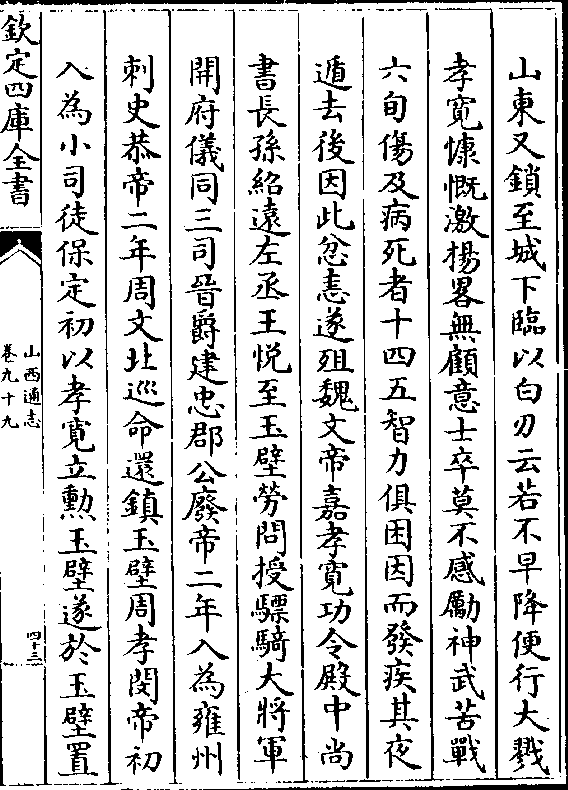 山東又鎖至城下臨以白刃云若不早降便行大戮
孝寛慷慨激揚畧無顧意士卒莫不感勵神武苦戰
六旬傷及病死者十四五智力俱困因而發疾其夜
遁去後因此忿恚遂殂魏文帝嘉孝寛功令殿中尚
書長孫紹遠左丞王悦至玉壁勞問授驃騎大將軍
開府儀同三司晉爵建忠郡公廢帝二年入為雍州
刺史恭帝二年周文北巡命還鎮玉壁周孝閔帝初
入為小司徒保定初以孝寛立勲玉壁遂於玉壁置
欽定四庫全書
山西通志
卷九十九
四十三